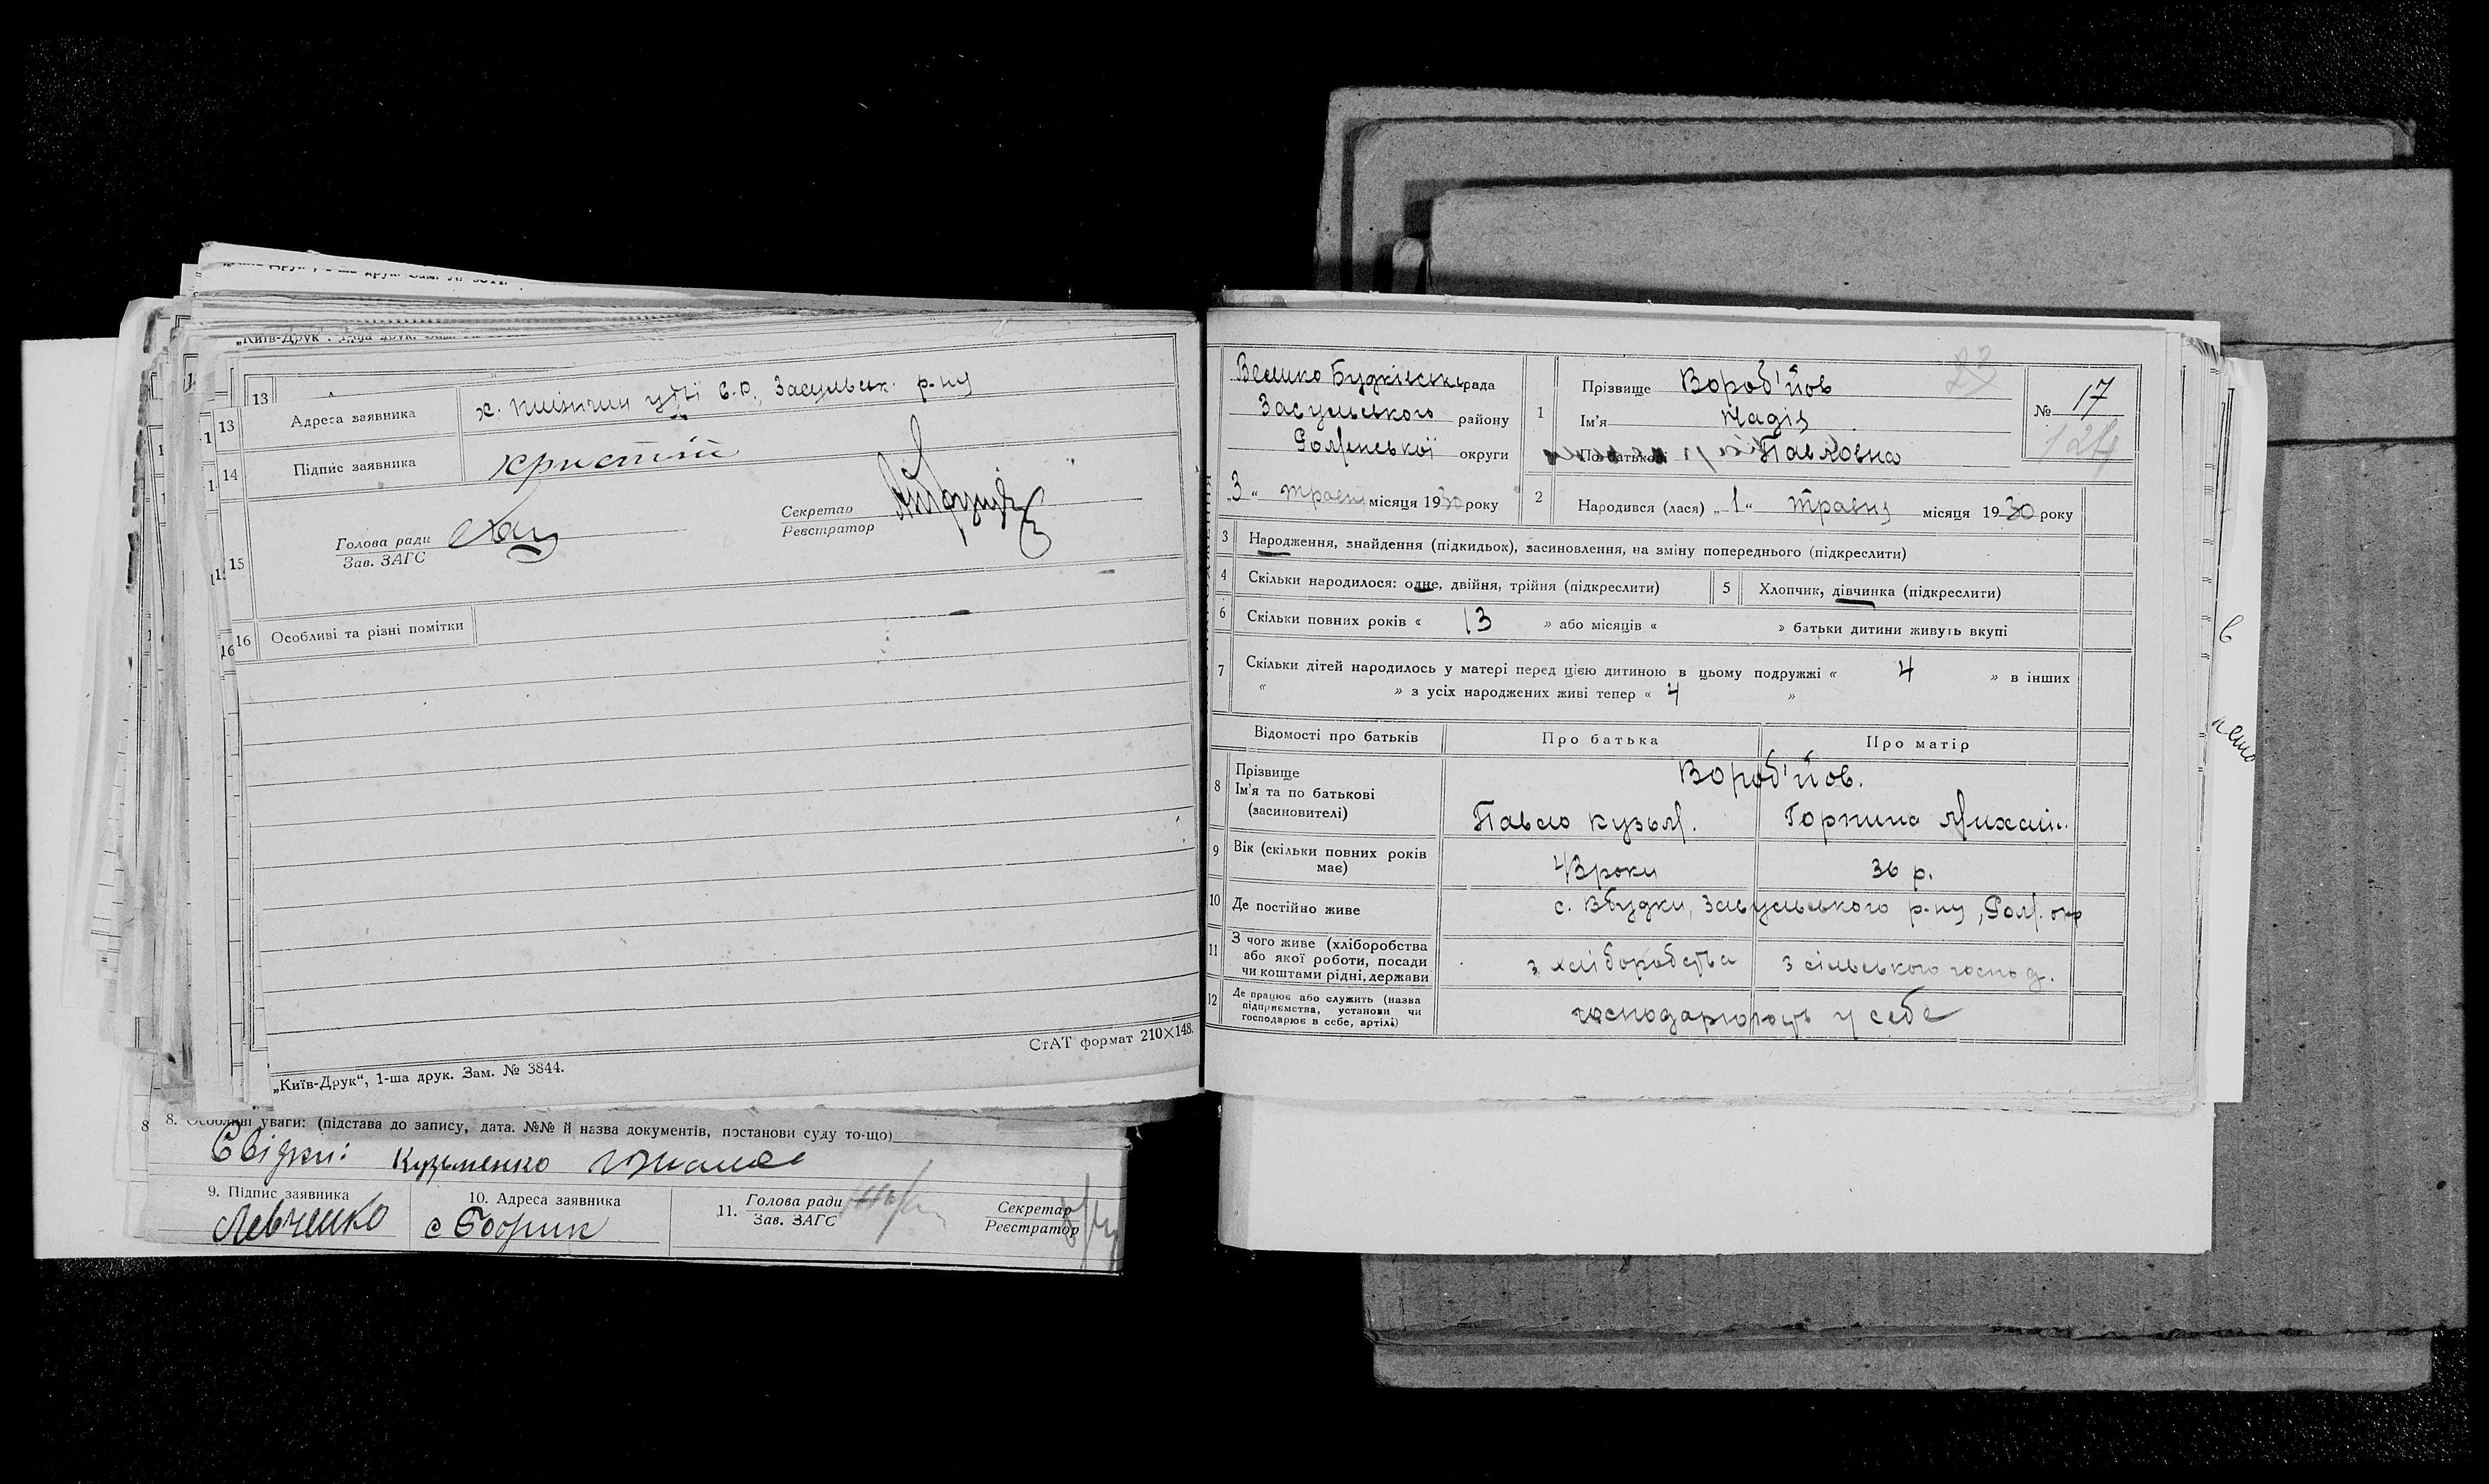 „Київ-Друк“, 1-ша друк. Зам.
13
13 Адреса заявника х. с.р., Засульськ. р-ну
14 Підпис заявника
15 Голова ради
Зав. ЗАГС
Секретар
Реєстратор
16 Особливі та різні помітки
СтАТ формат 210×148.
„Київ-Друк“, 1-ша друк. Зам. № 3844.
8. Особливі уваги: (підстава до запису, дата. №№ й назва документів, постанови суду то-що)
Свідки: Кузьменко
9. Підпис заявника
Левченко
10. Адреса заявника
с
11. Голова ради
Зав. ЗАГС
Секретар
Реєстратор
Велико Будківська рада
Засульського району
Роменської округи
„3“ травня місяця 1930 року
1 Прізвище Вороб'йов
Ім'я Надія
По батькові Павловна
23
№ 17
124
2 Народився (лася) „1“ травня місяця 1930 року
3 Народження, знайдення (підкидьок), засиновлення, на зміну попереднього (підкреслити)
4 Скільки народилося: одне, двійня, трійня (підкреслити)
5 Хлопчик, дівчинка (підкреслити)
6 Скільки повних років « 13 » або місяців « » батьки дитини живуть вкупі
7 Скільки дітей народилось у матері перед цією дитиною в цьому подружжі « 4 » в інших
« » з усіх народжених живі тепер « 4 »
Відомості про батьків Про батька Про матір
8 Прізвище
Ім'я та по батькові
(засиновителі)
Вороб'йов.
Павло Кузьм. Горпина Михайл.
9 Вік (скільки повних років має) 43 роки 36 р.
10 Де постійно живе с. Вбудки, Засульського р-ну, Ром. окр
11 З чого живе (хліборобства
або якої роботи, посади
чи коштами рідні, держави
з хліборобства з сільського господ.
12 Де працює або служить (назва
підприємства, установи чи
господарює в себе, артілі)
господарюють у себе